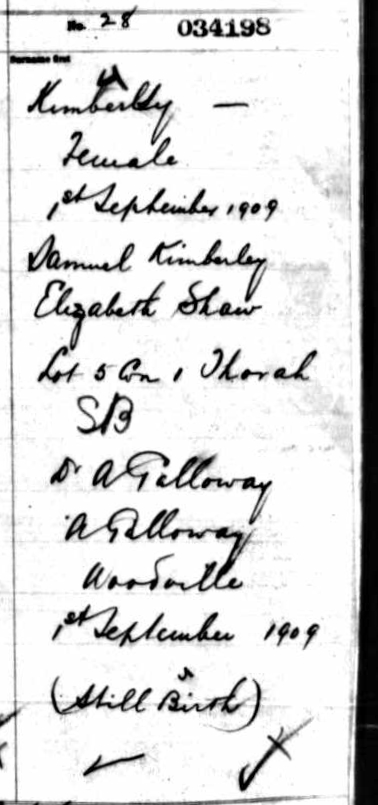 No. 28 034198
Surname first
Kimberley —
Female
1st September 1909
Samuel Kimberley
Elizabeth Shaw
Lot 5 Con 1 Thorah
SB
Dr A Galloway
A Galloway
Woodville
1st September 1909
(Still Birth)